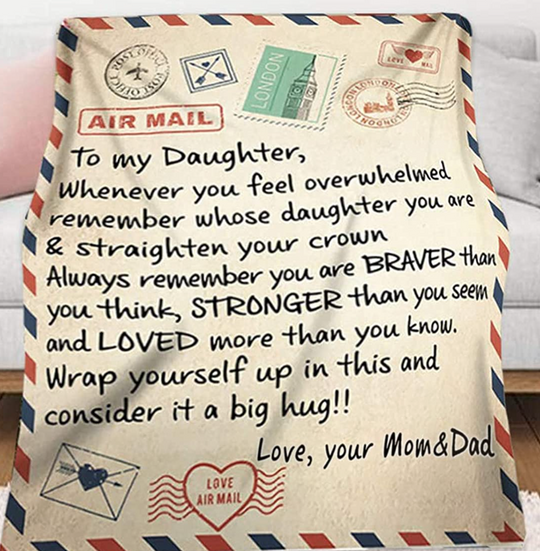 POST OFFICE POST OFFICE
LONDON
LOVE MAIL
LONDON LONDON LONDON LONDON
AIR MAIL
To my Daughter,
Whenever you feel overwhelmed
remember whose daughter you are
& straighten your crown
Always remember you are BRAVER than
you think, STRONGER than you seem
and LOVED more than you know.
Wrap yourself up in this and
consider it a big hug!!
Love, your Mom&Dad
LOVE
AIR MAIL